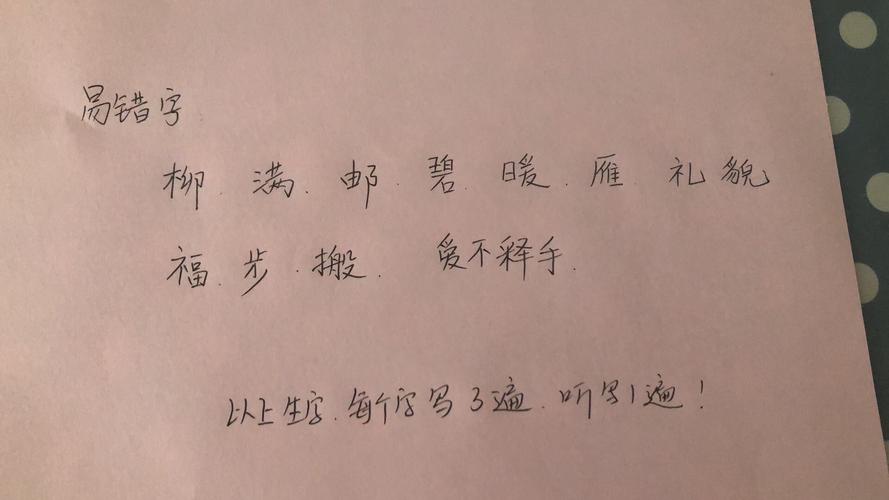 易错字
柳.满.邮.碧.暖.雁.礼貌
福.步.搬. 爱不释手.
以上生字.每个字写3遍.听写1遍!